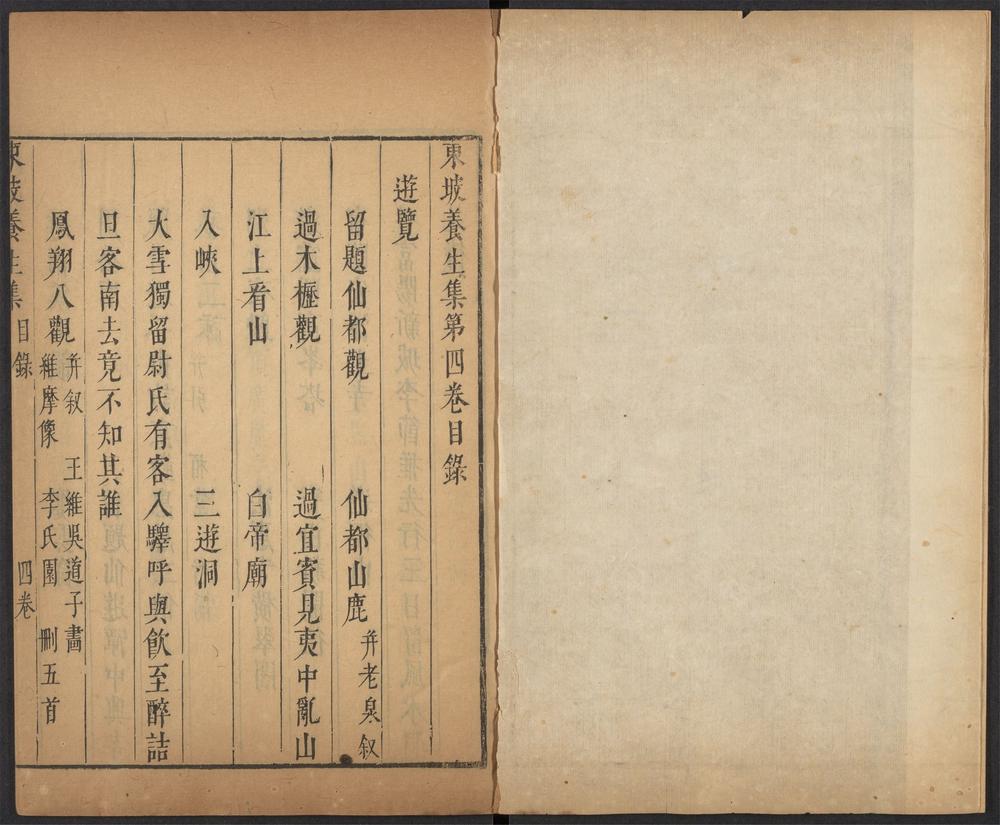 東坡養生集第四卷目錄
遊覽
留題仙都觀　仙都山鹿 并老泉叙
過木櫪觀　過宜賓見夷中亂山
江上看山　白帝廟
入峽　三遊洞
大雪獨留尉氏有客入驛呼與飲至醉詰
旦客南去竟不知其誰
鳳翔八觀 并叙　王維吳道子畵
維摩像　李氏園　刪五首
東坡養生集 目錄　四卷